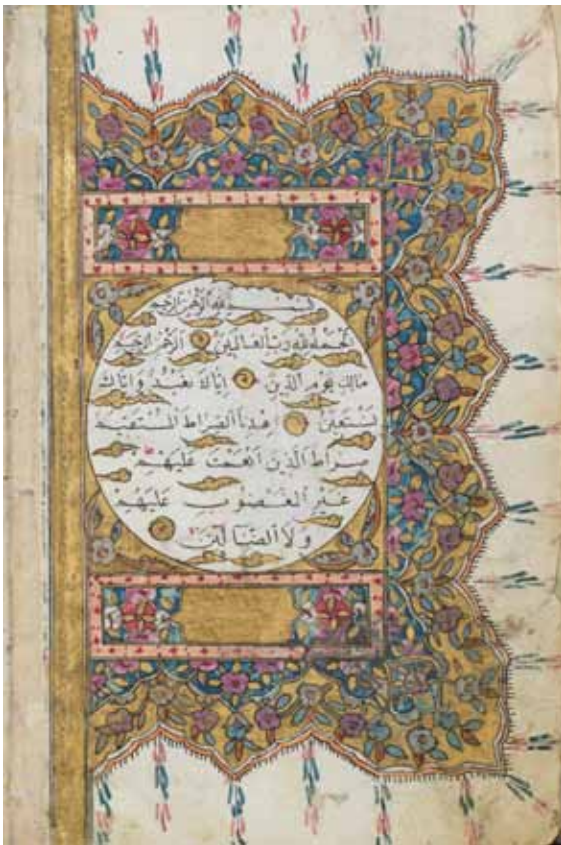 بِسْمِ اللهِ الرَّحْمٰنِ الرَّحِيمِ
اَلْحَمْدُ لِلهِ رَبِّ الْعَالَمِينَ اَلرَّحْمٰنِ الرَّحِيمِ
مَالِكِ يَوْمِ الدِّينِ اِيَّاكَ نَعْبُدُ وَاِيَّاكَ
نَسْتَعِينُ اِهْدِنَا الصِّرَاطَ الْمُسْتَقِيمَ
صِرَاطَ الَّذِينَ اَنْعَمْتَ عَلَيْهِمْ
غَيْرِ الْمَغْضُوبِ عَلَيْهِمْ
وَلَا الضَّالِّينَ